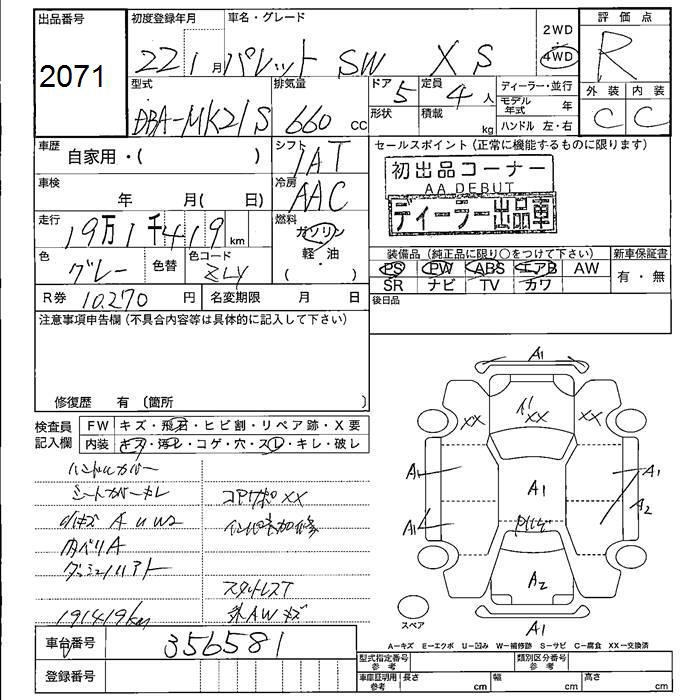 出品番号
2071
初度登録年月
22 1月
車名・グレード
パレット SW XS
2WD
・
4WD
評価点
R
外装 内装
C C
型式
DBA-MK21S
排気量
660 cc
ドア 5
形状
定員 4人
積載 kg
ディーラー・並行
モデル年式 年
ハンドル 左・右
車歴
自家用・( )
シフト
IAT
セールスポイント (正常に機能するものに限ります)
初出品コーナー
AA DEBUT
ディーラー出品車
車検
年 月( 日)
冷房
AAC
走行
19万1千419km
燃料
ガソリン
軽・油
( )
色
グレー
色替
色コード
ZLY
装備品 (純正品に限り○をつけて下さい)
PS PW ABS エアB AW
SR ナビ TV カワ
新車保証書
有・無
R券 10270 円
名変期限 月 日
後日品
注意事項申告欄 (不具合内容等は具体的に記入して下さい)
修復歴 有 (箇所 )
検査員記入欄
FW キズ・飛石・ヒビ割・リペア跡・X要
内装 キズ・汚レ・コゲ・穴・スレ・キレ・破レ
ハンドルカバー
シートカバーキレ
小キズ A U W2
コアサポXX
内ベリA
ダッシュハリアト
スタットレスT
191419km
社外AWキズ
A1
XX
XX
XX
A1
A1
A1
A1
A2
A2
A1
スペア
A-キズ E-エクボ U-凹み W-補修跡 S-サビ C-腐食 XX-交換済
車台番号
356581
登録番号
型式指定番号 参考
類別区分番号 参考
車庫証明用 参考
長さ cm
幅 cm
高さ cm